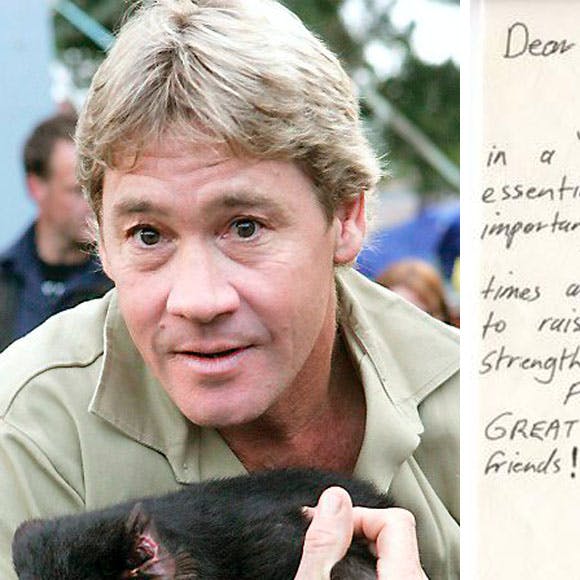 Dear
in a
essenti
importan
times a
to rais
strength
GREAT
friends!